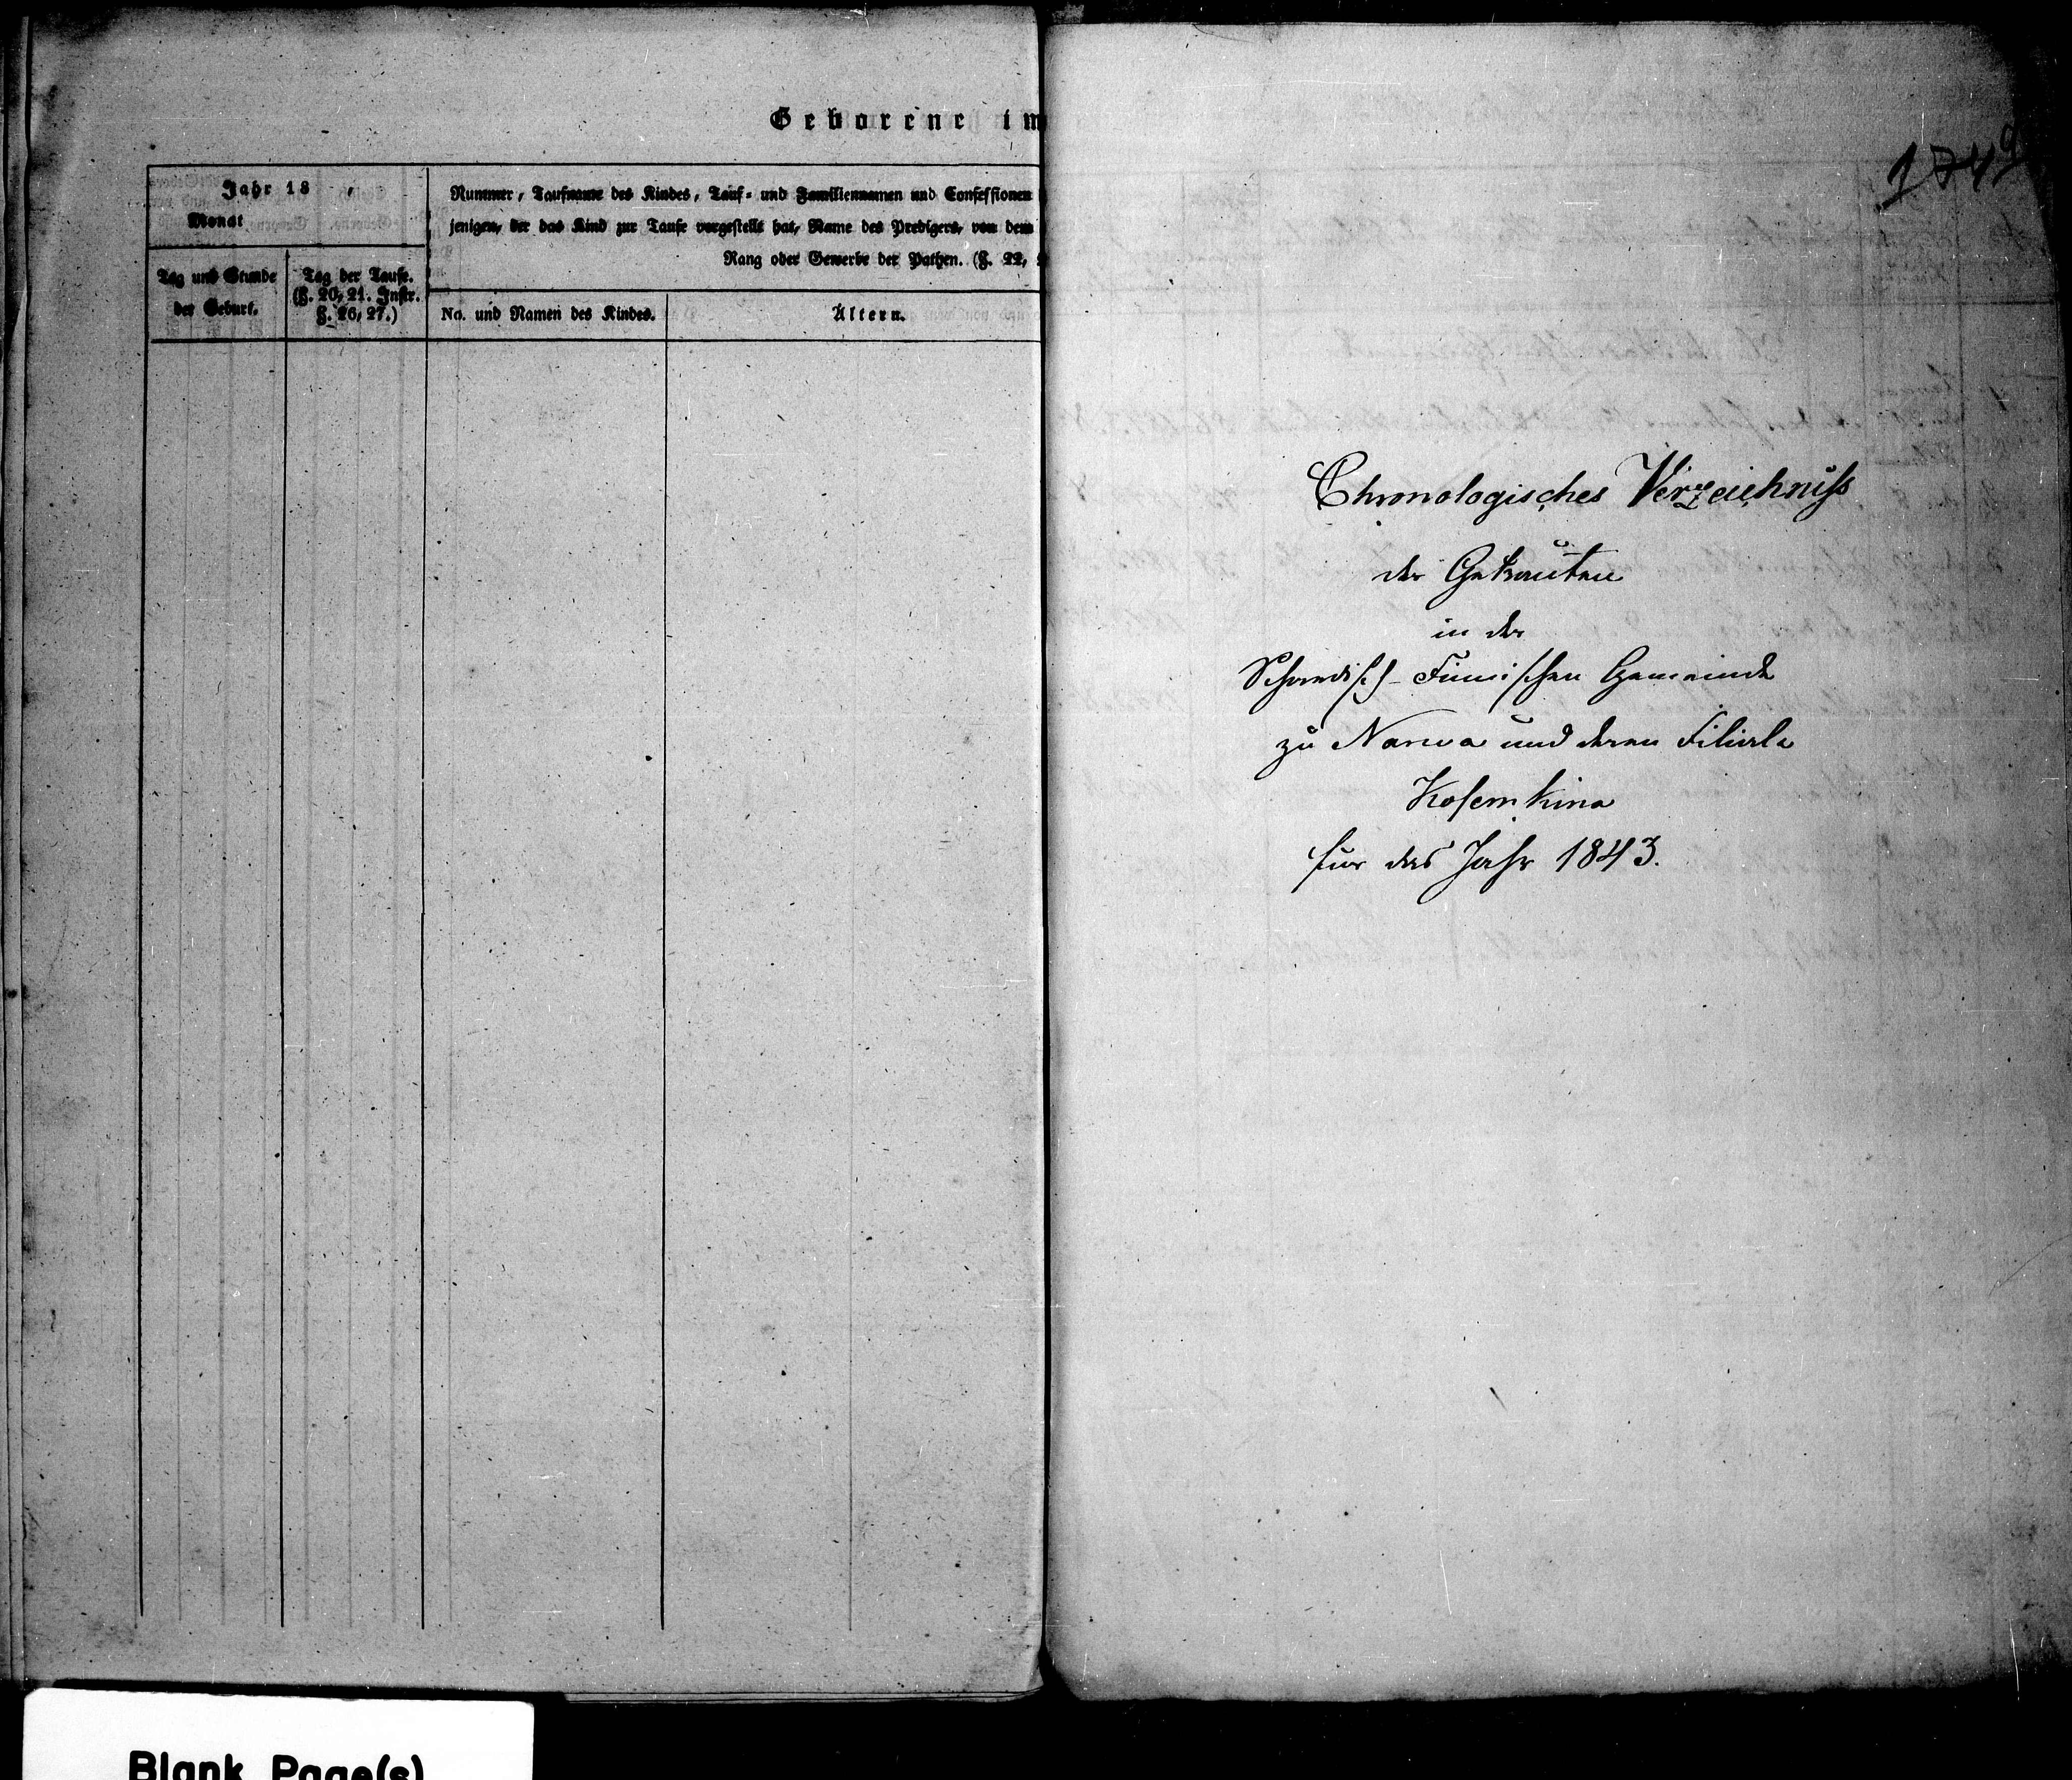 Geborene im
Jahr 18
Monat
Tag und Stunde
der Geburt.
Tag der Taufe.
(§. 20, 21. Instr.
§. 26, 27.)
Nummer, Taufname des Kindes, Tauf- und Familiennamen und Confessionen
jenigen, der das Kind zur Taufe vorgestellt hat, Name des Predigers, von dem
Rang oder Gewerbe der Pathen. (§. 22,
No. und Namen des Kindes.
Ältern.
Chronologisches Verzeichniß
der Getrauten
in der
Schwedisch-Finnischen Gemeinde
zu Narwa und deren Filiale
Kosemkina
für das Jahr 1843.
Blank Page(s)